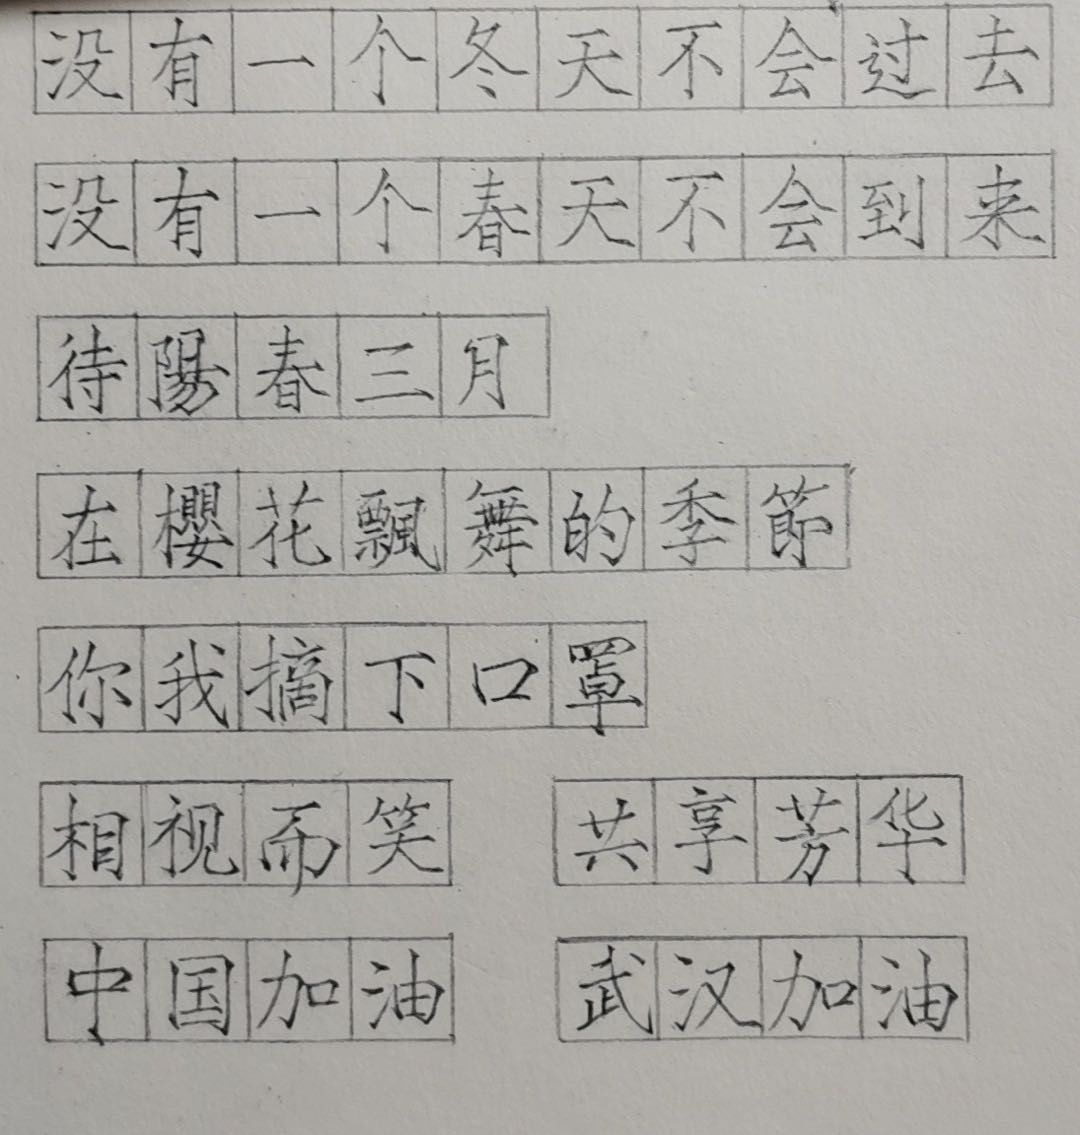 没有一个冬天不会过去
没有一个春天不会到来
待陽春三月
在櫻花飄舞的季節
你我摘下口罩
相视而笑 共享芳华
中国加油 武汉加油